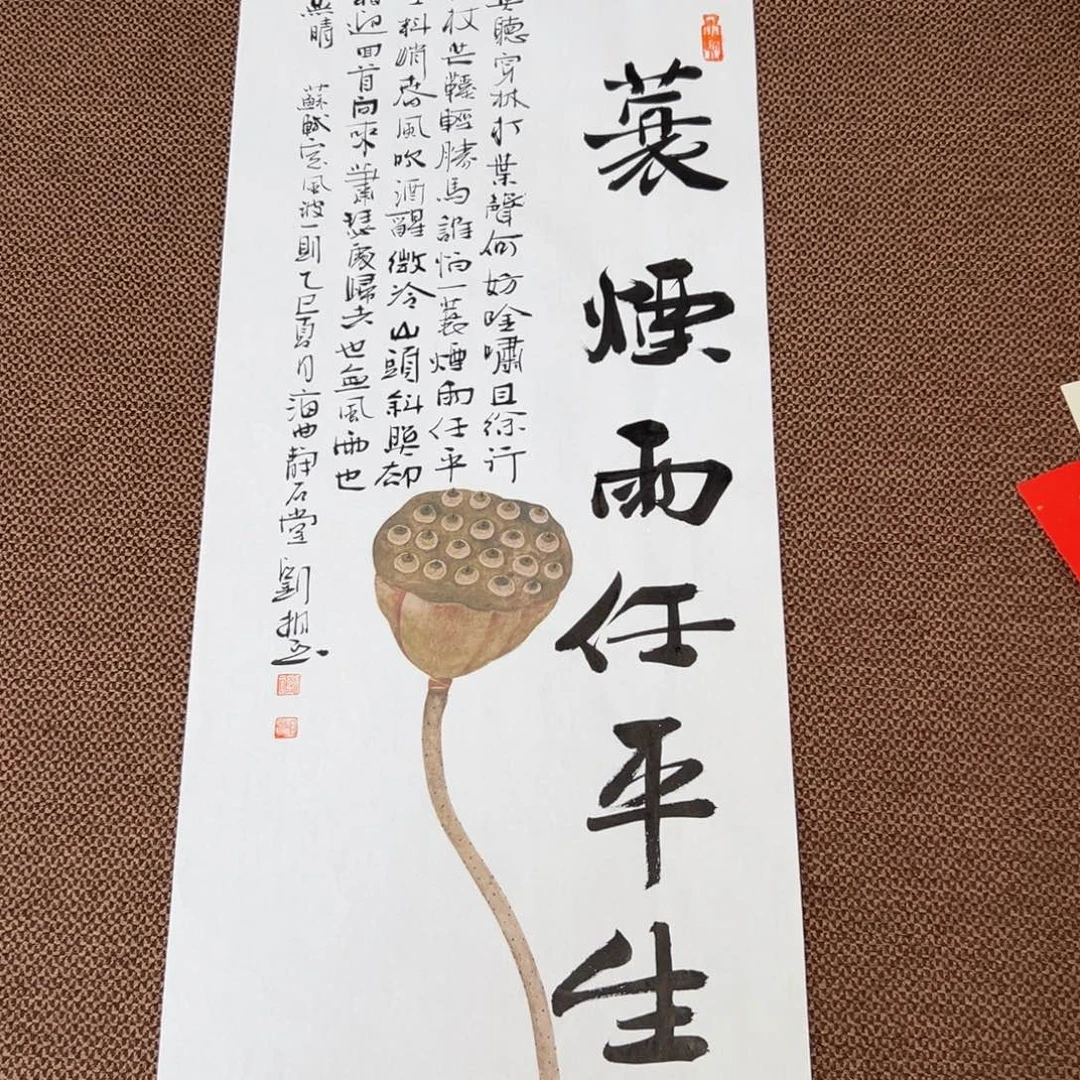 蓑煙雨任平生
莫聽穿林打葉聲何妨吟嘯且徐行
杖芒鞵輕勝馬誰怕一蓑煙雨任平
料峭春風吹酒醒微冷山頭斜照却
相迎回首向來蕭瑟處歸去也無風雨也
無晴 蘇軾定風波一則乙巳夏月海曲靜石堂劉